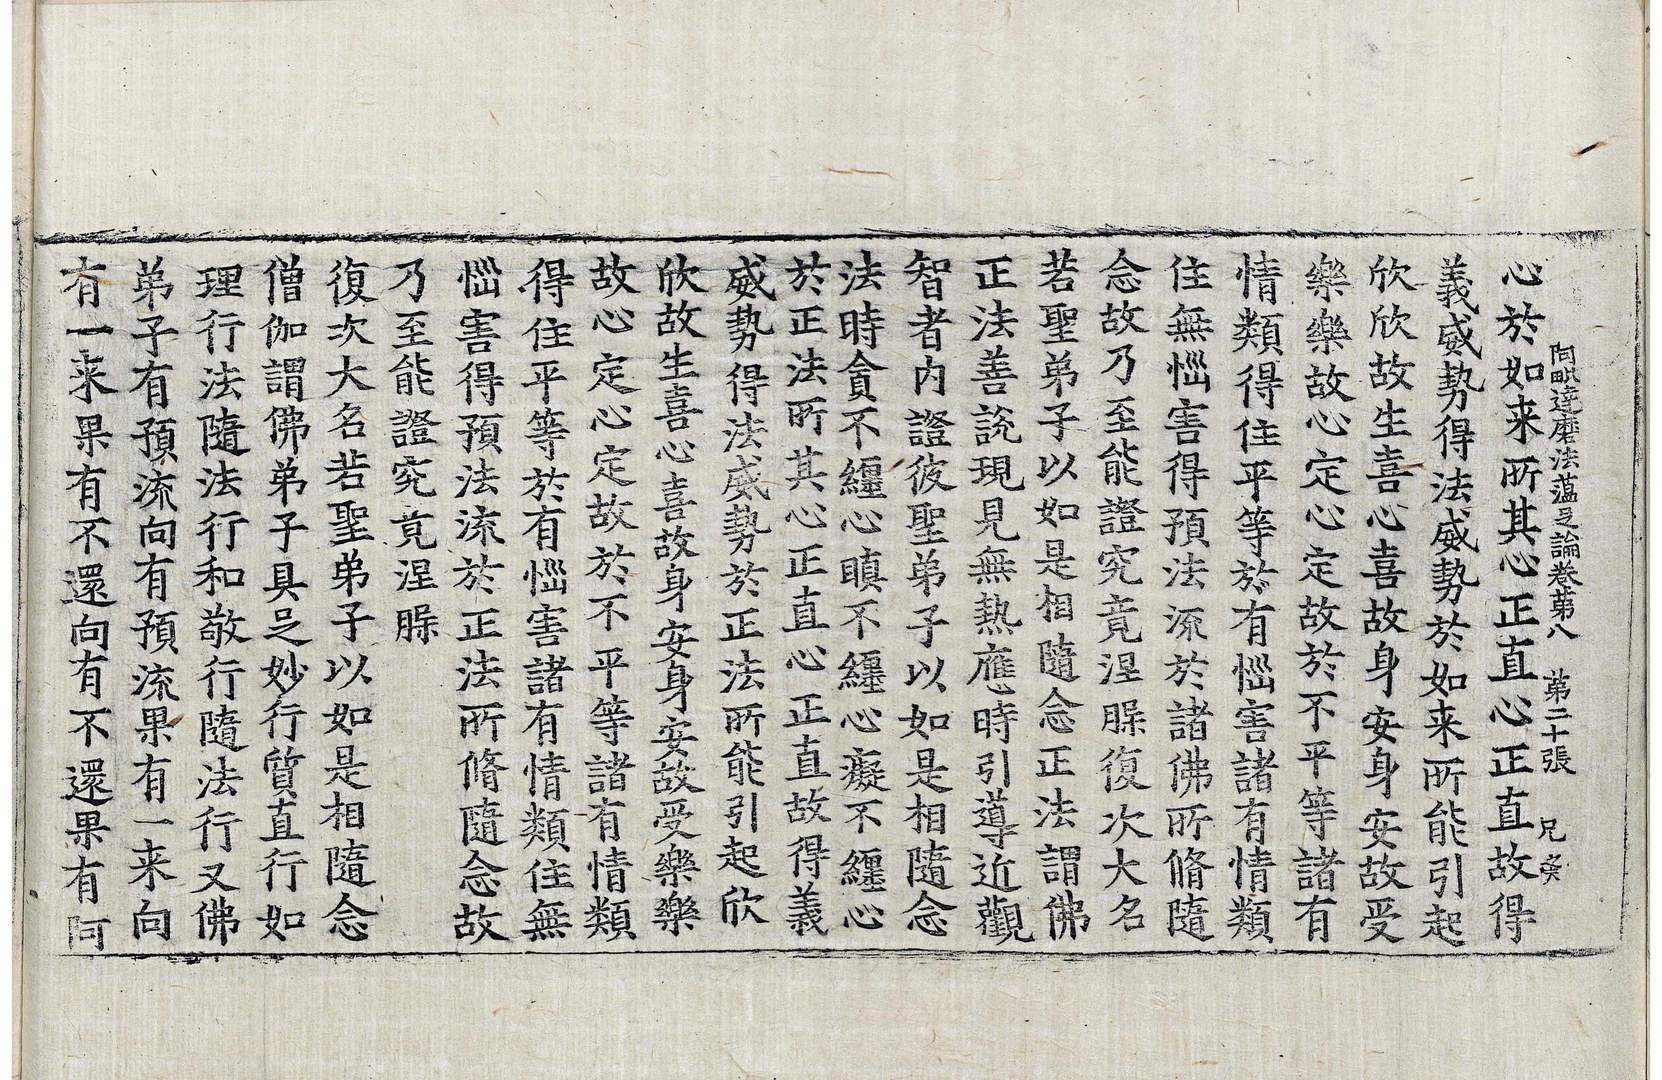 阿毗達磨法蘊足論卷第八　第二十張　兄
心於如来所其心正直心正直故得
義威勢得法威勢於如来所能引起
欣欣故生喜心喜故身安身安故受
樂樂故心定心定故於不平等諸有
情類得住平等於有惱害諸有情類
住無惱害得預法流於諸佛所脩隨
念故乃至能證究竟涅槃復次大名
若聖弟子以如是相隨念正法謂佛
正法善説現見無熱應時引導近觀
智者内證彼聖弟子以如是相隨念
法時貪不纏心瞋不纏心癡不纏心
於正法所其心正直心正直故得義
威勢得法威勢於正法所能引起欣
欣故生喜心喜故身安身安故受樂樂
故心定心定故於不平等諸有情類
得住平等於有惱害諸有情類住無
惱害得預法流於正法所脩隨念故
乃至能證究竟涅槃
復次大名若聖弟子以如是相隨念
僧伽謂佛弟子具足妙行質直行如
理行法隨法行和敬行隨法行又佛
弟子有預流向有預流果有一来向
有一来果有不還向有不還果有阿